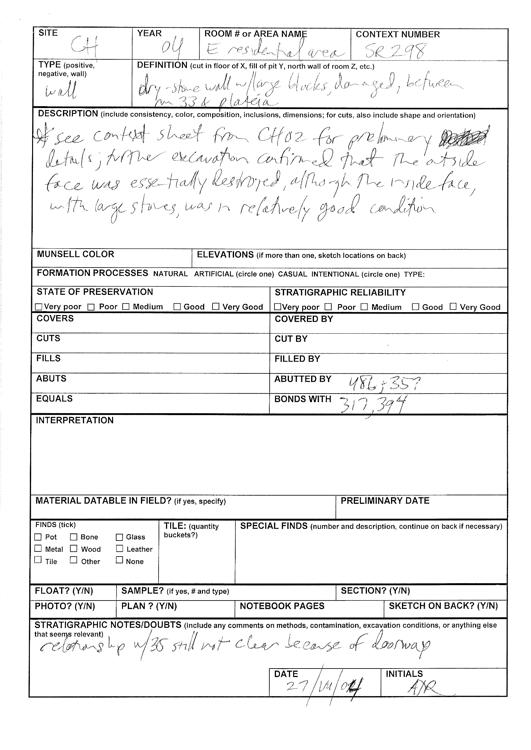 SITE CH YEAR 04 ROOM # or AREA NAME E residential area CONTEXT NUMBER SR298
TYPE (positive, negative, wall) wall DEFINITION (cut in floor of X, fill of pit Y, north wall of room Z, etc.)
dry-stone wall w/large blocks, damaged, between
rm 33 & plateia
DESCRIPTION (include consistency, color, composition, inclusions, dimensions; for cuts, also include shape and orientation)
* see context sheet from CH02 for preliminary
details; further excavation confirmed that the outside
face was essentially destroyed, although the inside face,
with large stones, was in relatively good condition
MUNSELL COLOR ELEVATIONS (if more than one, sketch locations on back)
FORMATION PROCESSES NATURAL ARTIFICIAL (circle one) CASUAL INTENTIONAL (circle one) TYPE:
STATE OF PRESERVATION STRATIGRAPHIC RELIABILITY
Very poor Poor Medium Good Very Good Very poor Poor Medium Good Very Good
COVERS COVERED BY
CUTS CUT BY
FILLS FILLED BY
ABUTS ABUTTED BY 486; 35?
EQUALS BONDS WITH 317, 394
INTERPRETATION
MATERIAL DATABLE IN FIELD? (if yes, specify) PRELIMINARY DATE
FINDS (tick) TILE: (quantity buckets?) SPECIAL FINDS (number and description, continue on back if necessary)
Pot Bone Glass
Metal Wood Leather
Tile Other None
FLOAT? (Y/N) SAMPLE? (if yes, # and type) SECTION? (Y/N)
PHOTO? (Y/N) PLAN ? (Y/N) NOTEBOOK PAGES SKETCH ON BACK? (Y/N)
STRATIGRAPHIC NOTES/DOUBTS (Include any comments on methods, contamination, excavation conditions, or anything else
that seems relevant)
relationship w/35 still not clear because of doorway
DATE INITIALS
27/VII/04